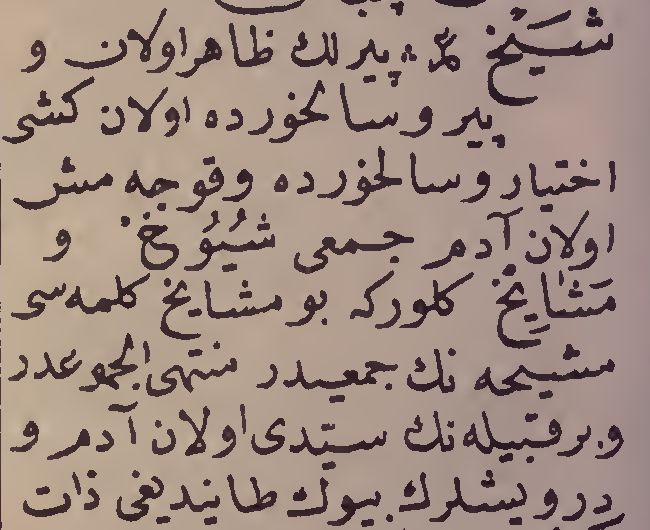 شَيْخ پيرلك ظاهر اولان و
پير و سالخورده اولان كشى
اختيار و سالخورده و قوجه مش
اولان آدم جمعى شُيُوخ و
مَشَايِخ كلوركه بو مشايخ كلمه سى
مشيحه نك جمعيدر منتهى الجموعدر
و بر قبيله نك سيّدى اولان آدم و
درويشلرك بيوك طانيديغى ذات